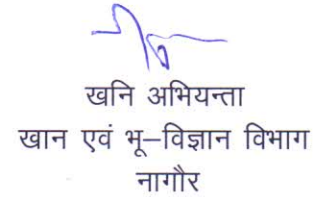 खनि अभियन्ता
खान एवं भू–विज्ञान विभाग
नागौर